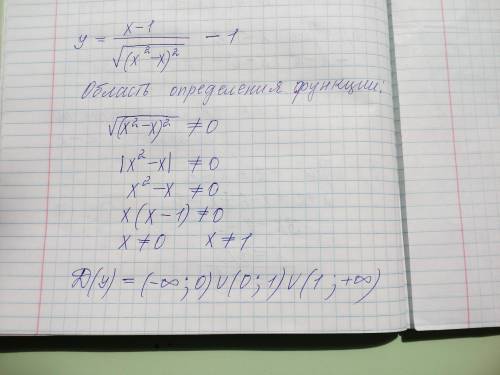 y = \frac{x-1}{\sqrt{(x^2-x)^2}} - 1
Область определения функции:
\sqrt{(x^2-x)^2} ≠ 0
|x^2-x| ≠ 0
x^2-x ≠ 0
x(x-1) ≠ 0
x ≠ 0 x ≠ 1
D(y) = (-∞; 0) ∪ (0; 1) ∪ (1; +∞)